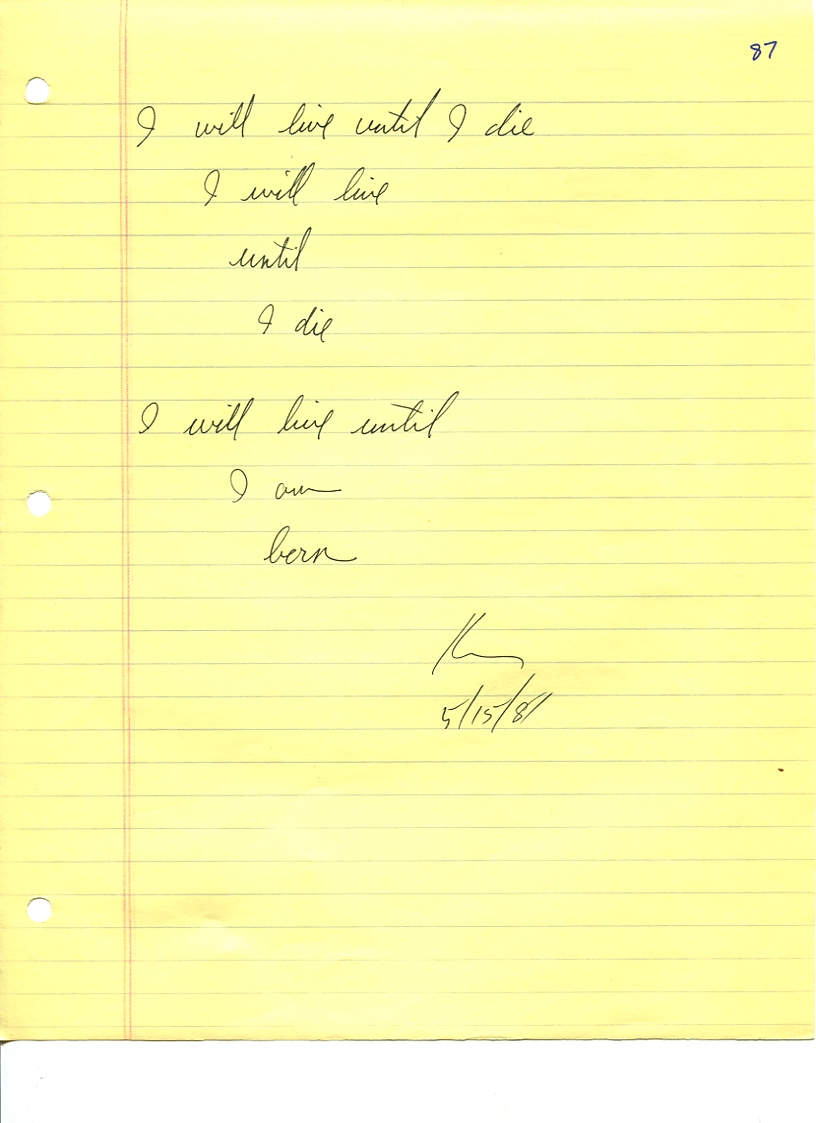 87
I will live until I die
I will live
until
I die
I will live until
I am
born
5/15/81